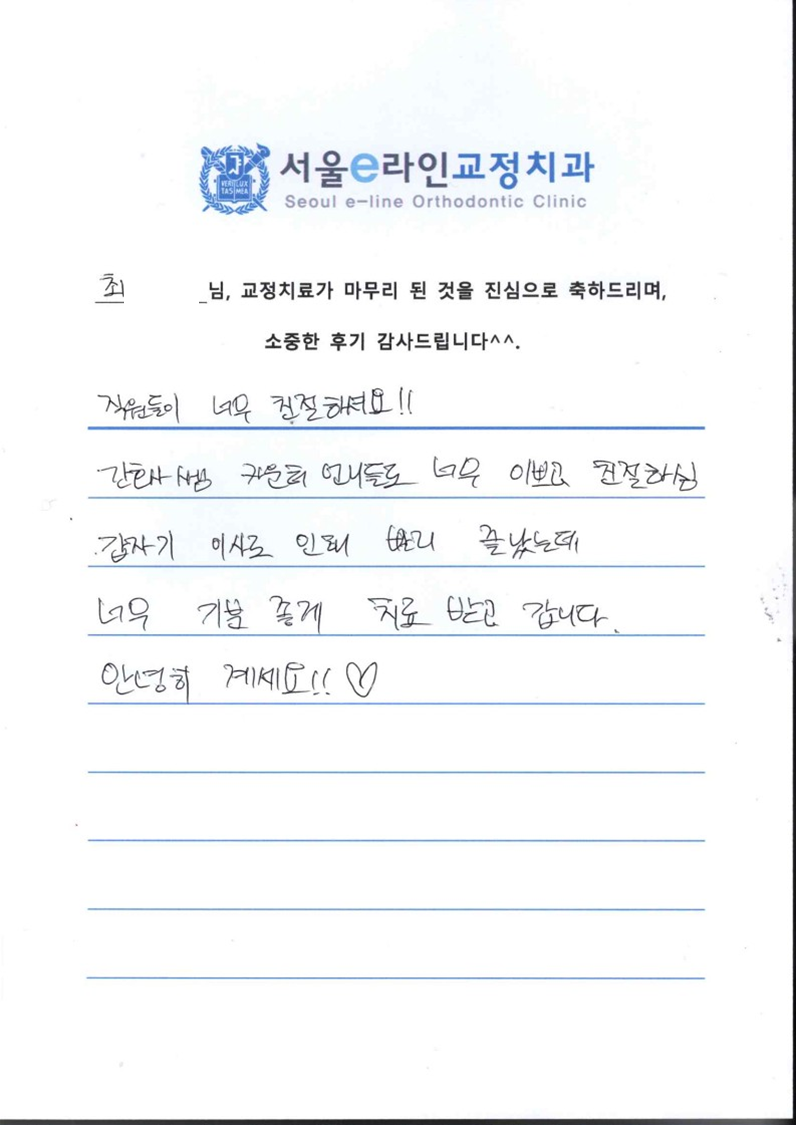 VERI LUX TAS MEA
서울e라인교정치과
Seoul e-line Orthodontic Clinic
최 _님, 교정치료가 마무리 된 것을 진심으로 축하드리며,
소중한 후기 감사드립니다^^.
직원들이 너무 친절하셔요!!
간호사쌤 카운터 언니들도 너무 이쁘고 친절하심
갑자기 이사로 인해 빨리 끝났는데
너무 기분 좋게 치료 받고 갑니다.
안녕히 계세요!! ♡